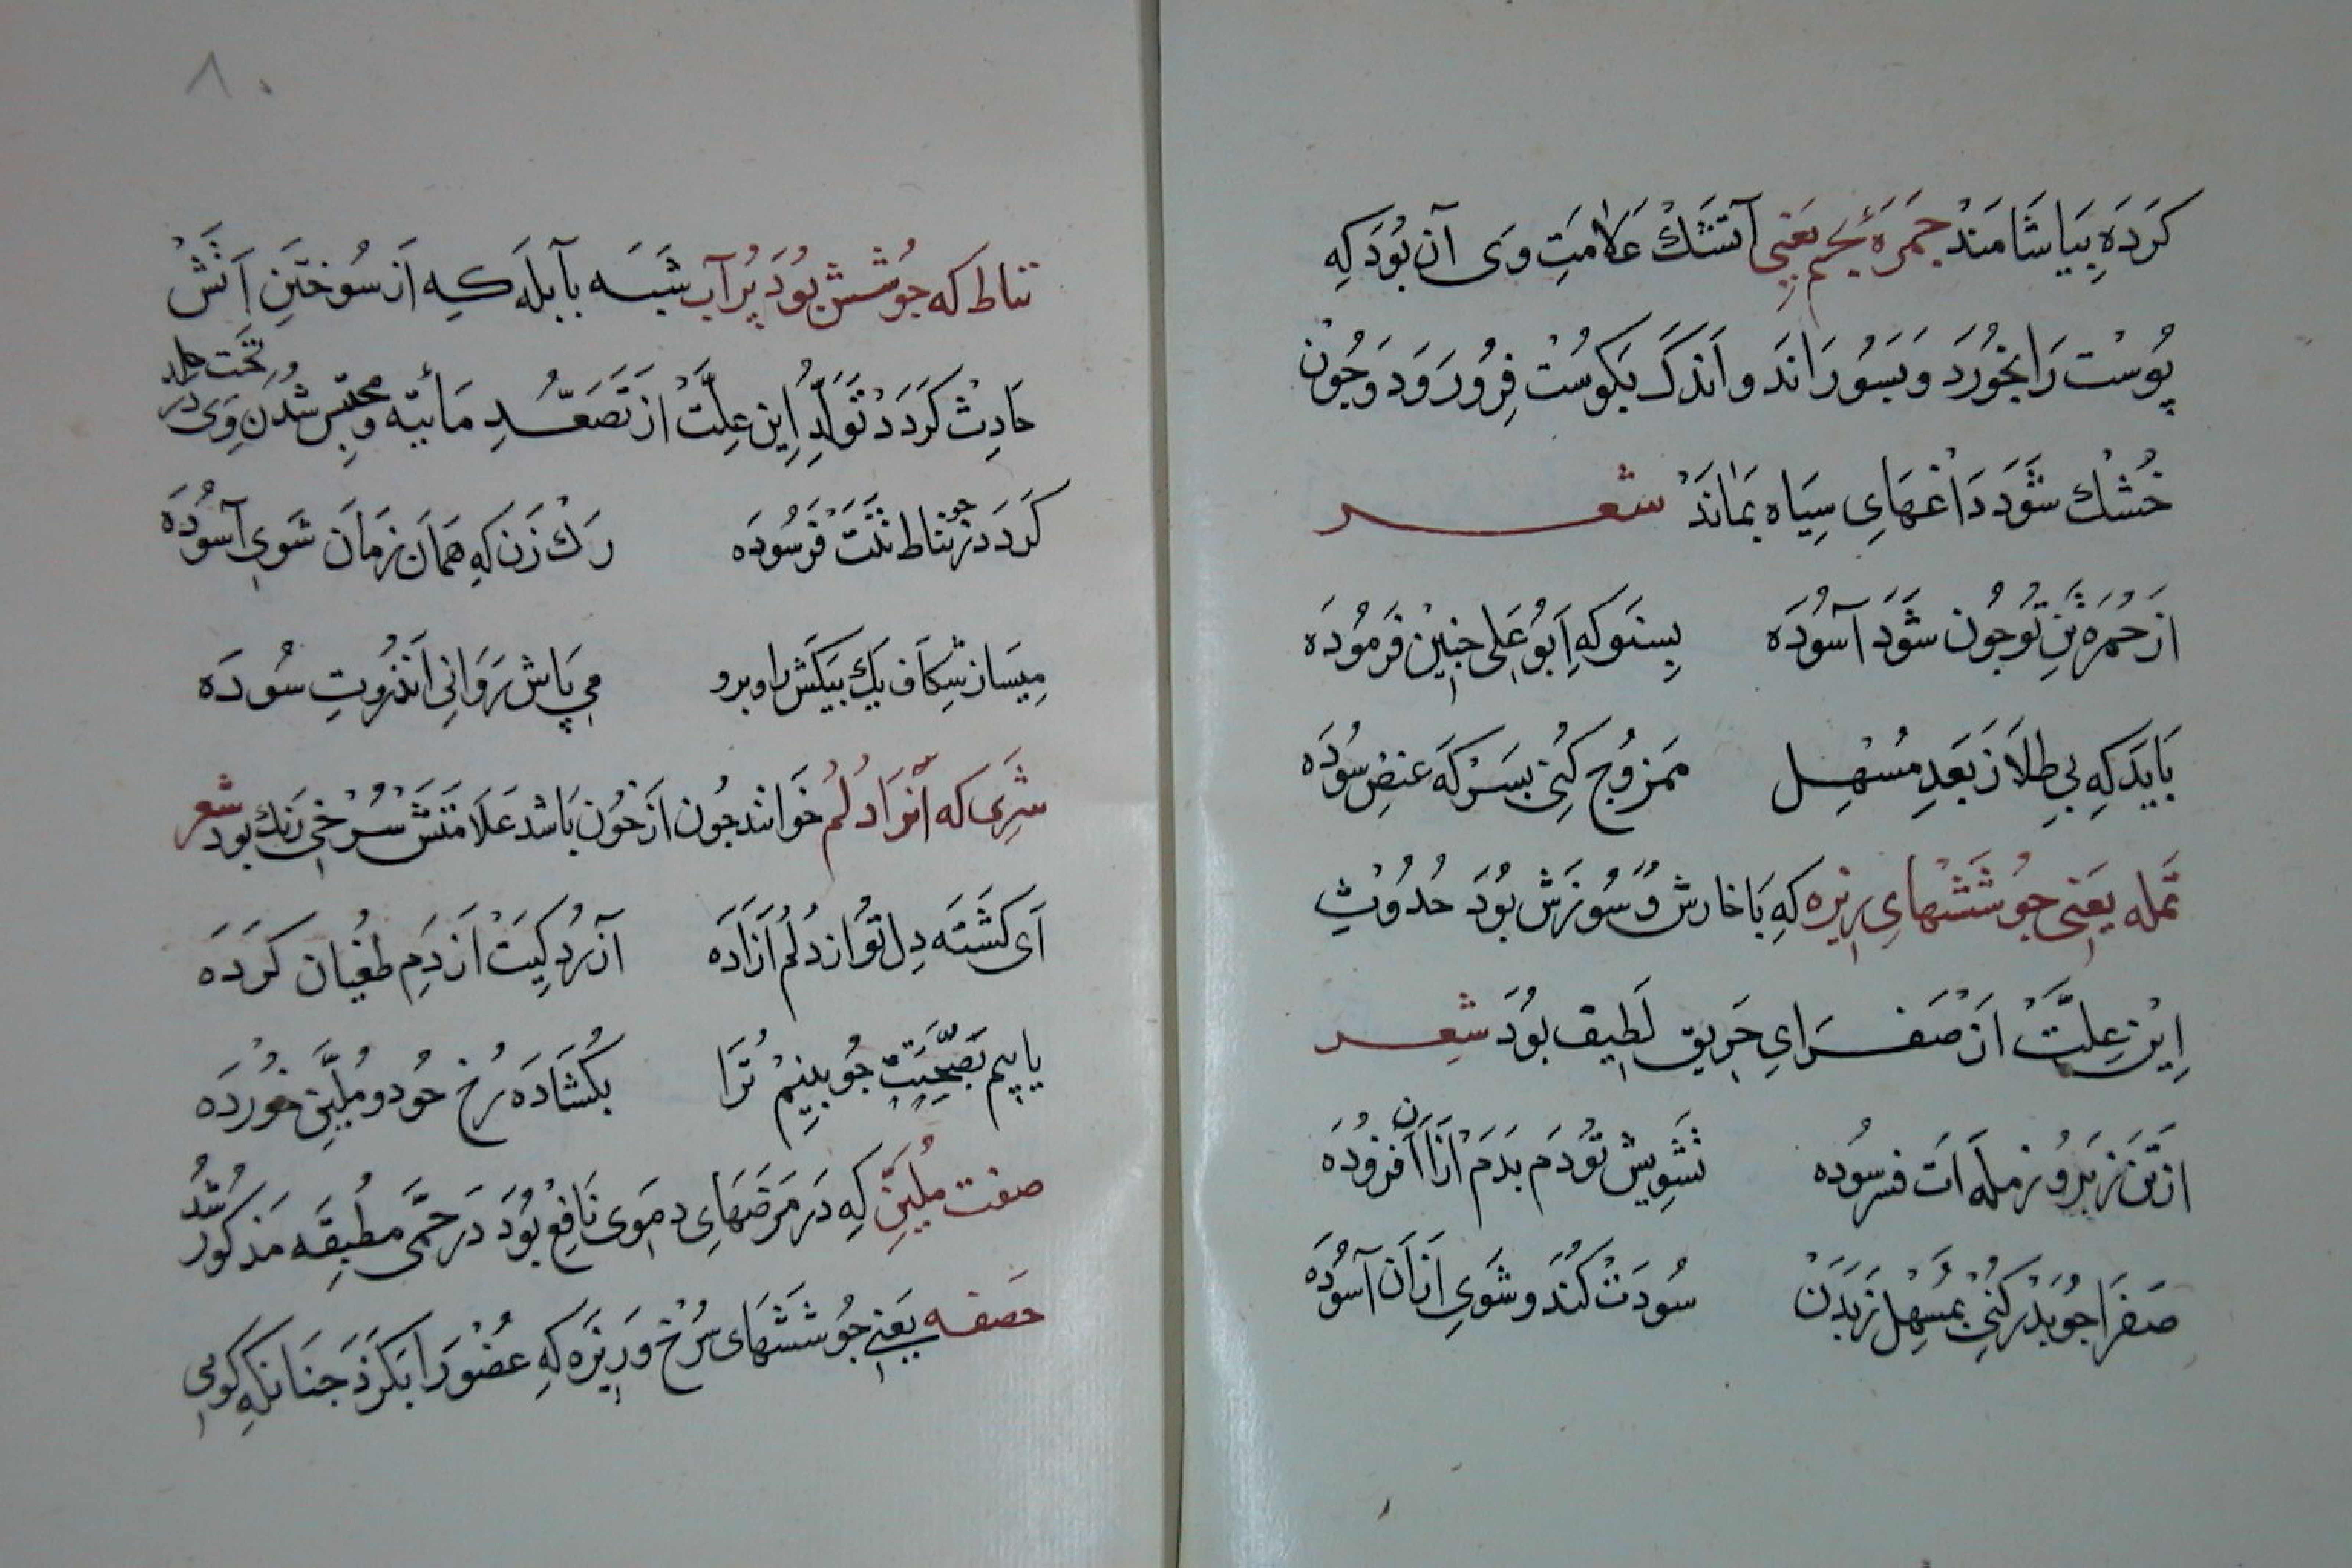 كَردَهِ بِيَاشَامَنْد جَمَرَهٔ بجيم يَعَنِي آتَشَكْ عَلَامَتِ وَى آن بُوَد كِهِ
پُوسْت رَا بخُورَد وَ بَسُورَانَد و اَندَكَ بَكوسْت فِرُورَوَد وَجُون
خُشْك شَوَد دَاغهَاىِ سِيَاه بمَانَدْ شعر
از حُمَرَه تَنِ تُو جُون شَوَد آسُودَه بِشنَو كهِ اَبُو عَلِى جنِيْن فَرمُودَه
بَايَد كهِ بِى طِلَا زَبَعدِ مُسْهِل مَمزوُج كُنِى بسَركَه عنصِ سُودَه
نمله يَعَنِى جوُشَشْهَاىِ رِيزه كهِ بَا خَارِش وَ سُوزَش بُوَد حُدوُثِ
اِيْن عِلَّتْ اَز صَفرَاىِ حَرِيق لَطِيف بُوَد شِعر
از تَن نَرَبَد وُ نمله اَت فرسُوده تَشَوِيش تُو دَم بَدَمْ اَزَان اَفزوُدَه
صَفرَا جُو بَدَر كُنِى بمُسْهِل زَبَدَنْ سُودَتْ كُنَد و شَوِى اَزَان آسُودَه
٨٠
نناط كه جوُشِش بُوَد پُر آب شَبَه بآبلَه كِه اَز سُوختَنِ اَتَشْ
حَادِثْ كَردَد تَوَلُّدِ اِين عِلَّتْ از تَصَعُّدِ مَائيّه و محتبِس شُدَنِ وَى دَر تَحَت جلد
كَردَد جو زنناط تنَت فَرسُودَه رَكْ زَن كهِ هَمَان زمَان شَوِى آسُودَه
مِيسَان شِكَاف يَك بيَكَش را وبرو مِى پَاش رَوَانِى اَنذرُوتِ سُودَه
شَرِى كه آنرَا دُلُم خَوانند جُون اَز خُون بَاشد عَلَامَتَش سُرْخِى رَنك بود شعر
اَى كَشَتَه دِل تُو از دُلُم اَزَادَه آن رُدكِيَتْ اَز دَمِ طغُيَان كَردَه
يابيم بَصِّحَيَتْ جُو بِينِيمْ تُرَا بكُشَادَه رُخ خُود و مُلَيِّن خُورْدَه
صفت مُلَيِّن كهِ دَر مَرَضهَاىِ دمَوِى نَافِع بُوَد دَر حمَّى مُطبِقَه مَذكُور شُدْ
حَصفه يَعَنِى جوُشَشهَاى سُرْخ و رِيزَه كهِ عضُو رَا بكَرَذ جنَانكهِ كوىى